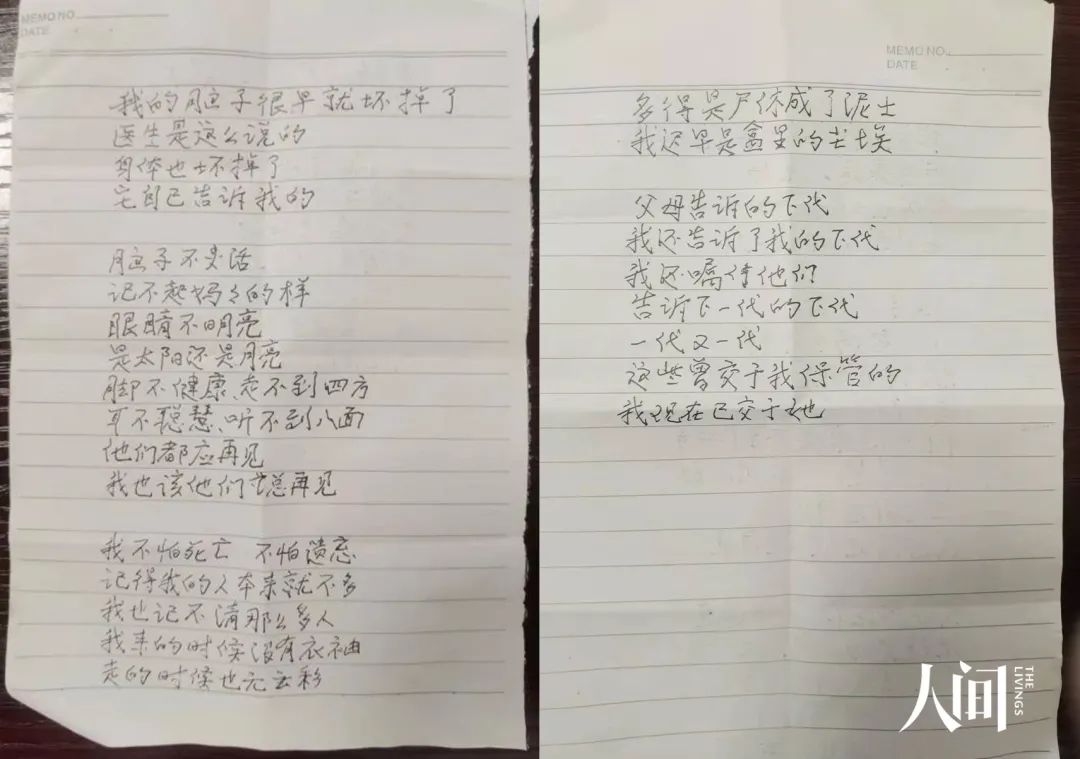 MEMO NO.
DATE
我的脑子很早就坏掉了
医生是这么说的
身体也坏掉了
它自己告诉我的
脑子不灵活
记不起妈々的样
眼睛不明亮
是太阳还是月亮
脚不健康、走不到四方
耳不聪慧、听不到八面
他们都应再见
我也该他们说再见
我不怕死亡 不怕遗忘
记得我的人本来就不多
我也记不清那么多人
我来的时候没有衣袖
走的时候也无云彩
MEMO NO.
DATE
多得是尸体成了泥土
我迟早是盒里的尘埃
父母告诉的下代
我还告诉了我的下代
我还嘱待他们
告诉下一代的下代
一代又一代
这些曾交于我保管的
我现在已交于他
人间
THE LIVINGS